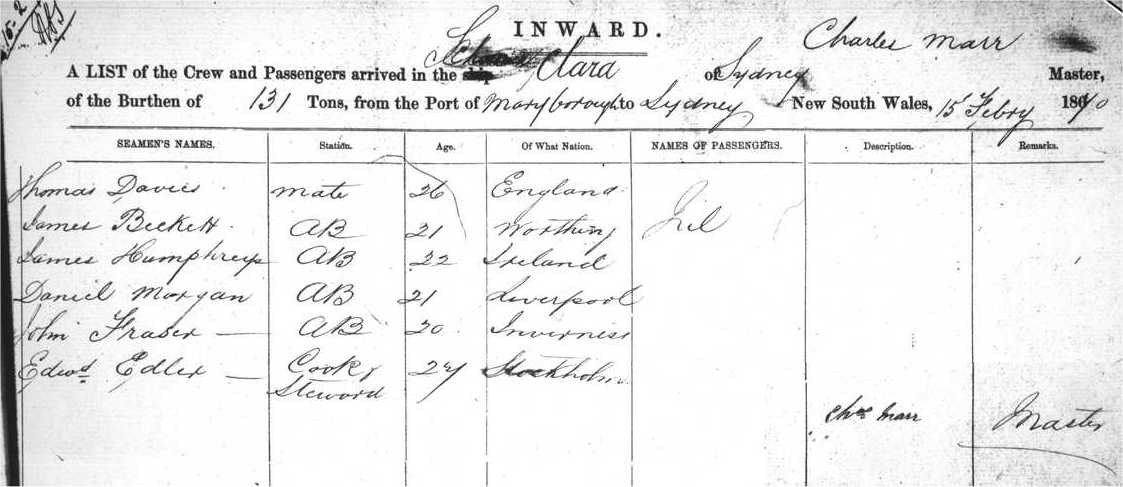 15-2
INWARD.
Charles Marr
A LIST of the Crew and Passengers arrived in the ship Clara of Sydney Master,
of the Burthen of 131 Tons, from the Port of Maryborough to Sydney New South Wales, 15 Febry 1870
SEAMEN'S NAMES. Station. Age. Of What Nation. NAMES OF PASSENGERS. Description. Remarks.
Thomas Davies mate 26 England Nil
James Beckett AB 21 Worthing
James Humphreys AB 22 Ireland
Daniel Morgan AB 21 Liverpool
John Fraser — AB 20 Inverness
Edwd Edler — Cook & 24 Stockholm
Steward
Chas Marr Master